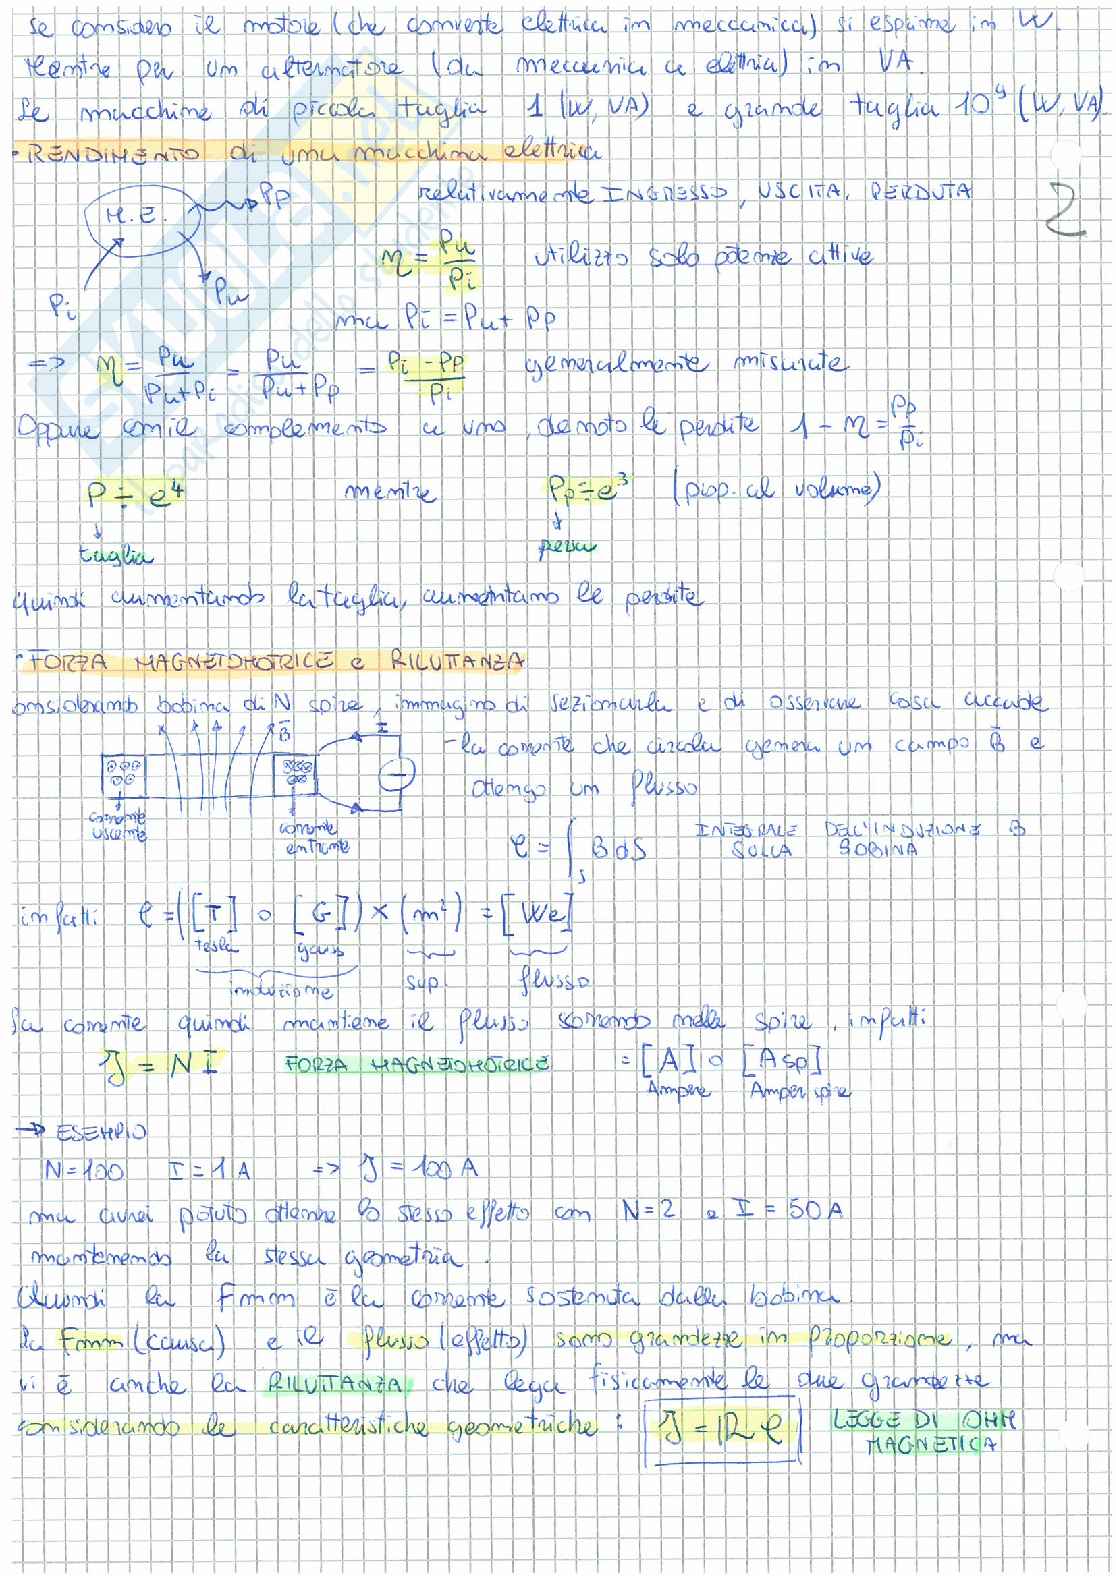 se considero il motore (che converte elettrica in meccanica) si esprime in W.
Mentre per un alternatore (da meccanica a elettrica) in VA.
Se macchine di piccola taglia 1 (W, VA) e grande taglia 10⁹ (W, VA).
• RENDIMENTO di una macchina elettrica
relativamente INGRESSO, USCITA, PERDUTA
2
M.E.
Pp
Pi
Pu
η = Pu/Pi utilizzo solo potenze attive
ma Pi = Pu + Pp
=> η = Pu/(Pu+Pi) = Pu/(Pu+Pp) = (Pi - Pp)/Pi generalmente misurate
Oppure con il complemento a uno, denoto le perdite 1 - η = Pp/Pi
P ÷ e⁴ mentre Pp ÷ e³ (prop. al volume)
↓ ↓
taglia persa
Quindi aumentando la taglia, aumentano le perdite
• FORZA MAGNETOMOTRICE e RILUTTANZA
onsiderando bobina di N spire, immagino di sezionarla e di osservare cosa accade
B̄
I
- la corrente che circola genera un campo B̄ e
ottengo un flusso
corrente uscente
corrente entrante
φ = ∫s B dS INTEGRALE DELL'INDUZIONE B
SULLA BOBINA
infatti φ = ([T] o [G]) × (m²) = [We]
tesla gauss
induzione sup. flusso
La corrente quindi mantiene il flusso scorrendo nelle spire, infatti
ℑ = N I FORZA MAGNETOMOTRICE = [A] o [Asp]
Ampere Amper spire
→ ESEMPIO
N=100 I=1A => ℑ = 100 A
ma avrei potuto ottenere lo stesso effetto con N=2 e I = 50A
mantenendo la stessa geometria.
Quindi la Fmm è la corrente sostenuta dalla bobina
la Fmm (causa) e il flusso (effetto) sono grandezze in proporzione, ma
vi è anche la RILUTTANZA che lega fisicamente le due grandezze
considerando le caratteristiche geometriche : ℑ = ℝ φ LEGGE DI OHM
MAGNETICA